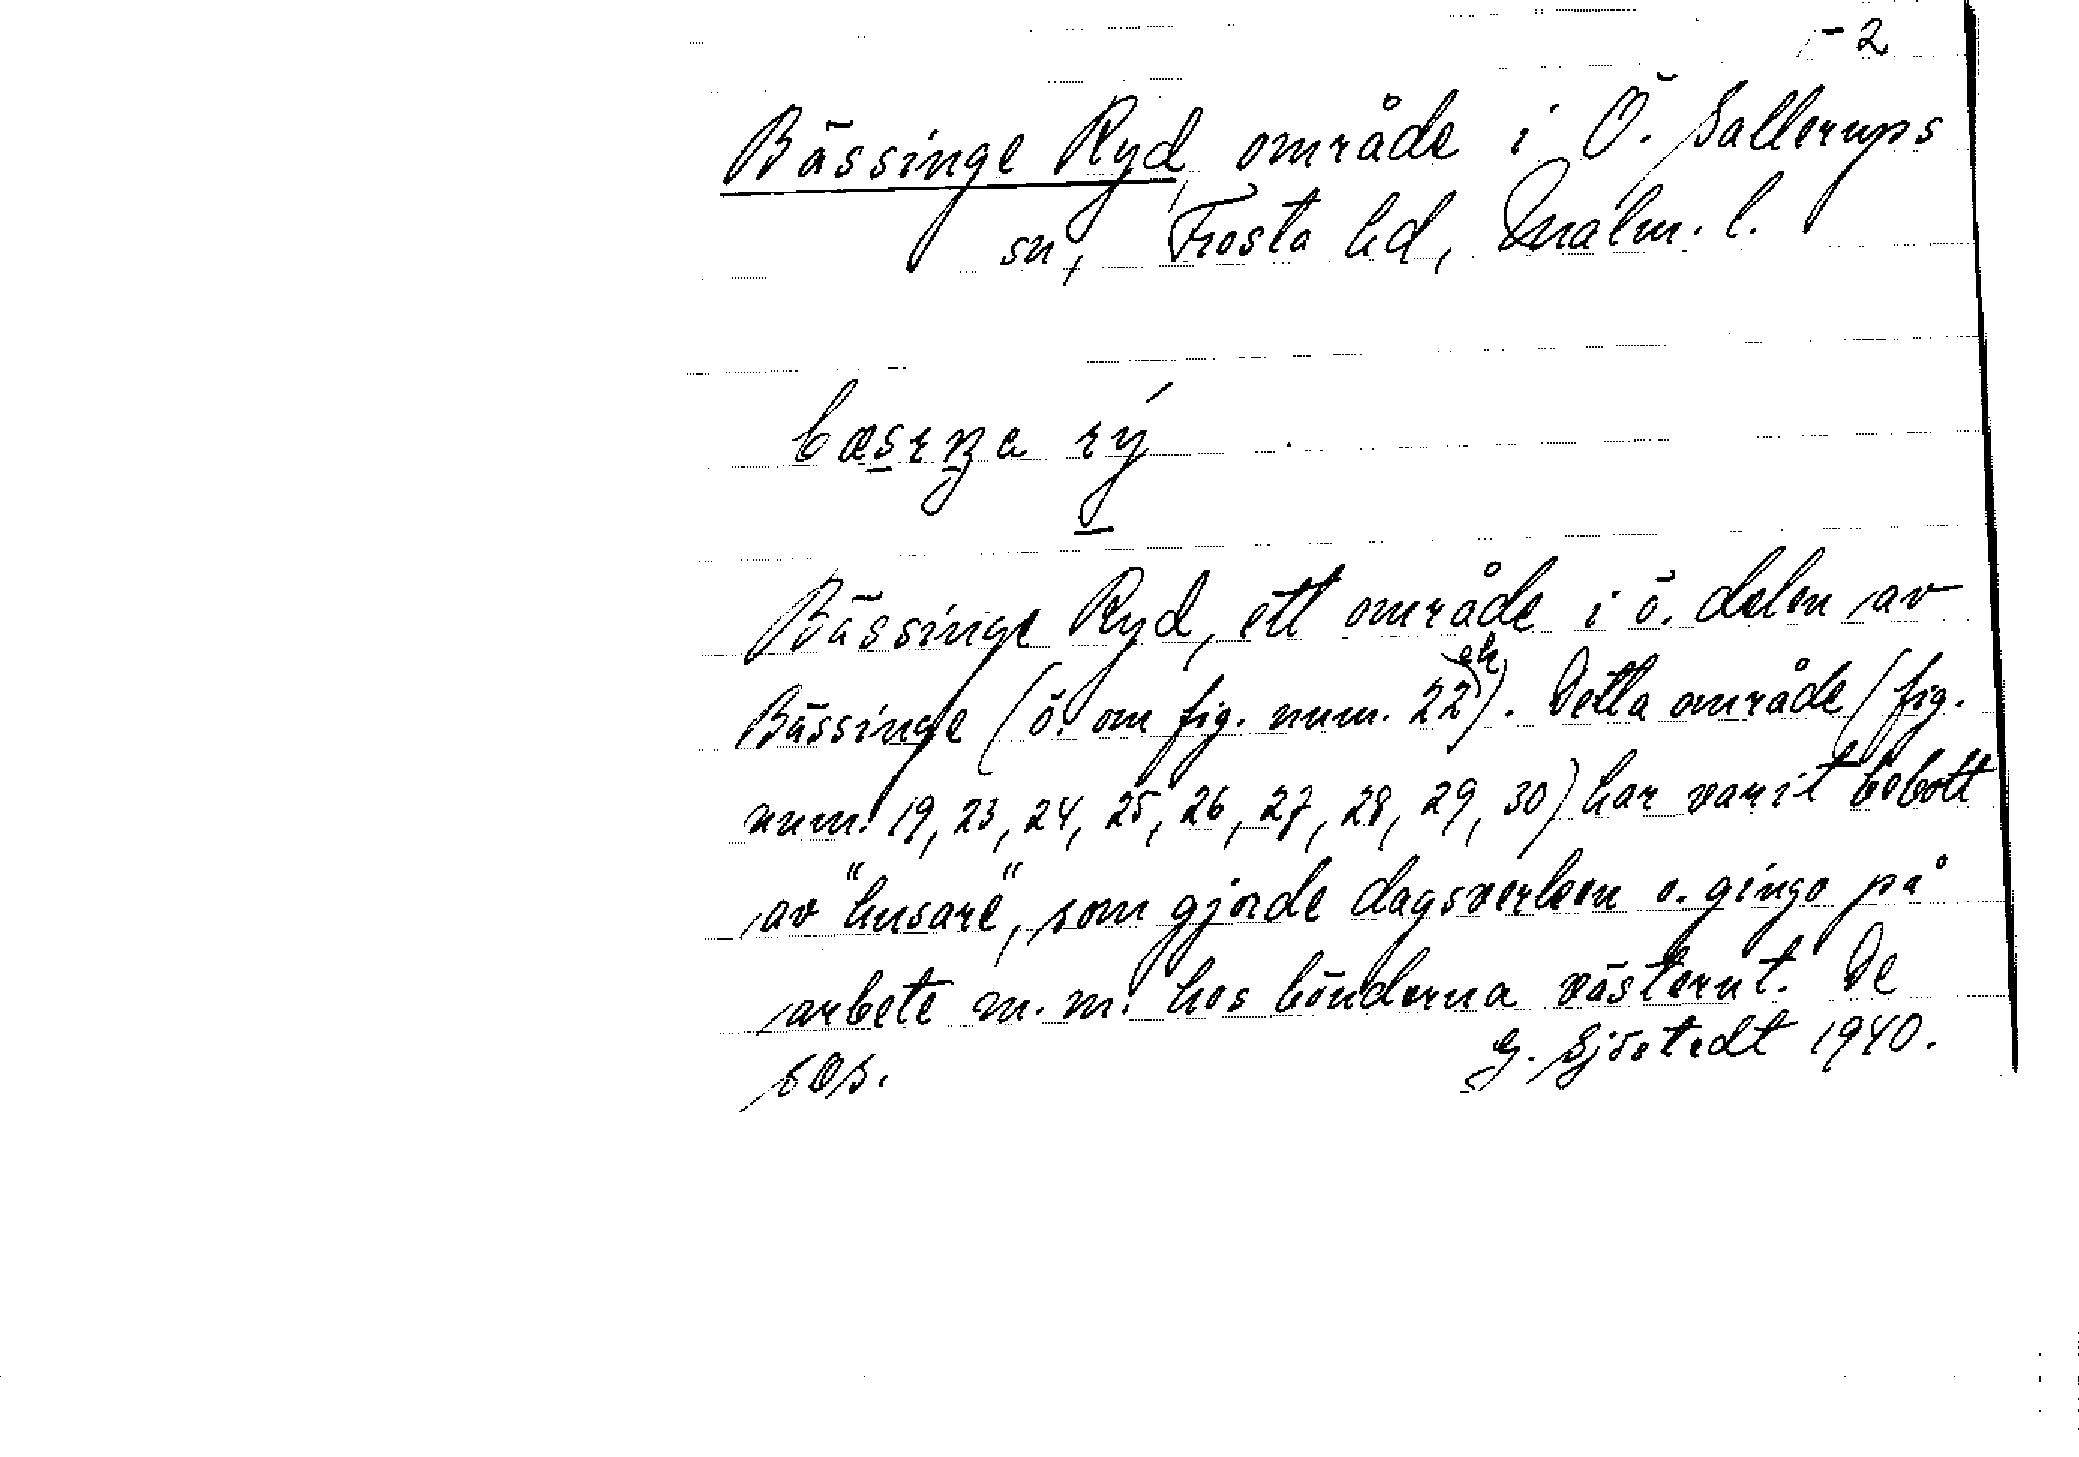 - 2
Bässinge Ryd, område i Ö. Sallerups
sn, Frosta hd, Malm. l.
Bässinge Ryd, ett område i ö. delen av
Bässinge (ö. om fig. num. 22). Detta område (fig.
num. 19, 23, 24, 25, 26, 27, 28, 29, 30) har varit bebott
av "husare", som gjorde dagsverken o. gingo på
arbete m. m. hos bönderna västerut. De
G. Sjöstedt 1940.